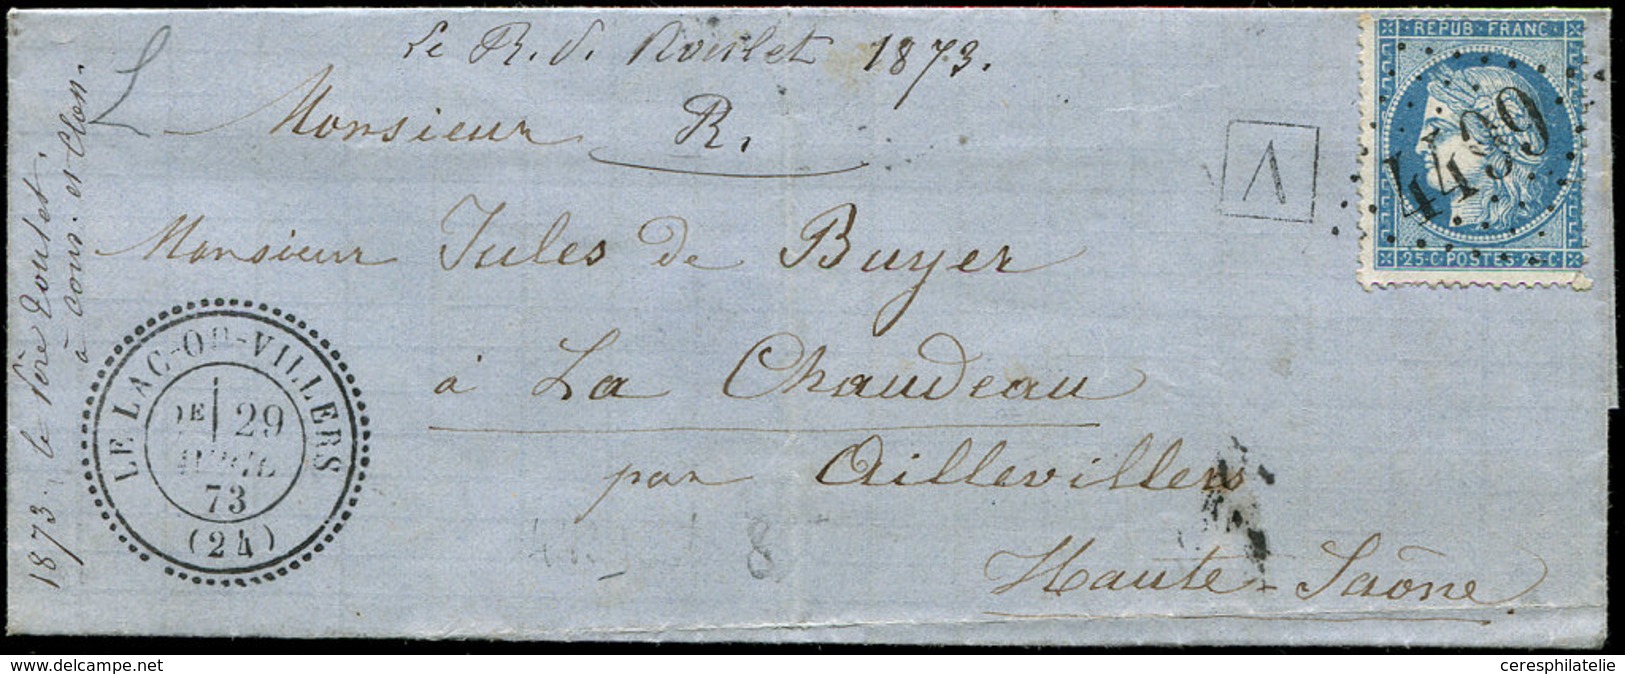 Le R. d. Roulet 1873.
Monsieur R.
Monsieur Jules de Buyer
à La Chaudeau
par Aillevillers
Haute-Saône
1873. le Père
à cour. et Clon.
LE LAC-OU-VILLERS
2E 29
AVRIL
73
(24)
V
REPUB·FRANC
4439
25·C·POSTES·25·C
8
delcampe.net
ceresphilatelie